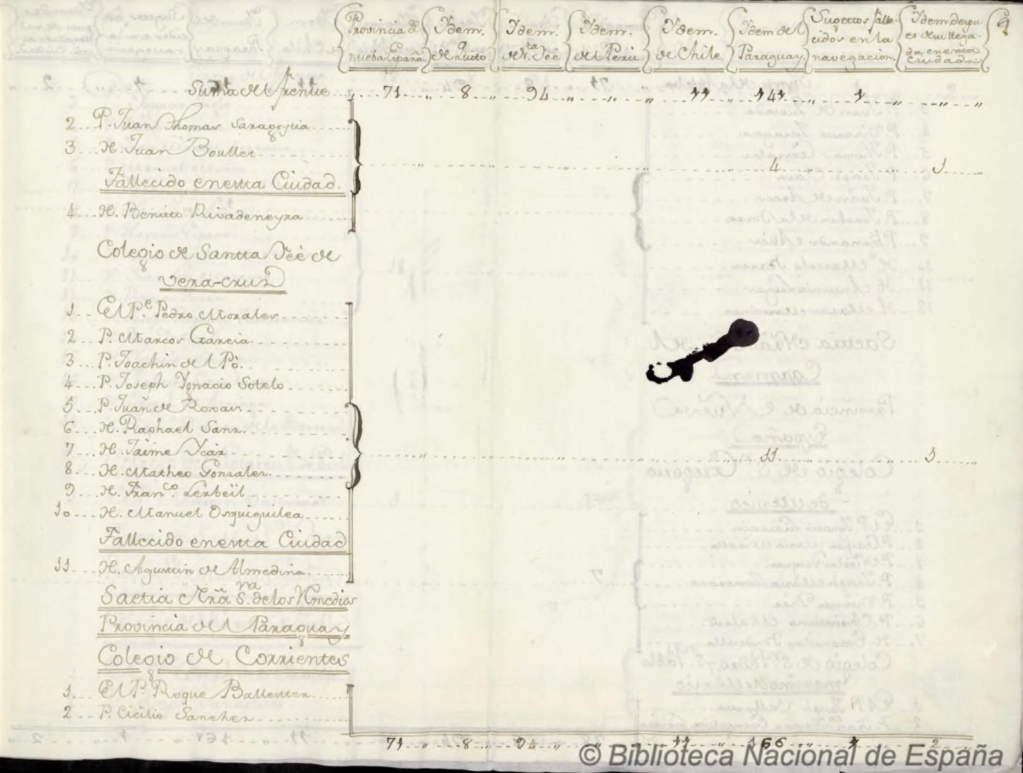 Provincia de nueba España Ydem. de Quito Ydem. de Sta. Fée Ydem. del Perú Ydem. de Chile Ydem del Paraguay Sugettos falle cidos en la navegacion Ydem despu es de su llega da en esta Ciudad.
Suma del frente 71 8 94 11 141 1
2 P. Juan Thomas
3 H. Juan Bouller 4 1
Fallecido en esta Ciudad.
4 H. Benitto Rivadeneyra
Colegio de Santta Feé de
Vera-cruz
1 El Pe. Pedro Morales
2 P. Marcos Garcia
3 P. Joachin del Pó
4 P. Joseph Ygnacio Sotelo
5 P. Juan de
6 H. Raphael Sanz
7 H. Jaime 11 1
8 H. Matheo Gonzalez
9 H. Franco.
10 H. Manuel Osquiguilea
Fallecido en esta Ciudad
11 H. Agustin de Almedina
Saetia Nrã Sra. de los Rmedios
Provincia del Paraguay
Colegio de Corrientes
1 El P. Roque Ballester
2 P. Cicilio Sanchez
71 8 94 11 166 1 2
© Biblioteca Nacional de España